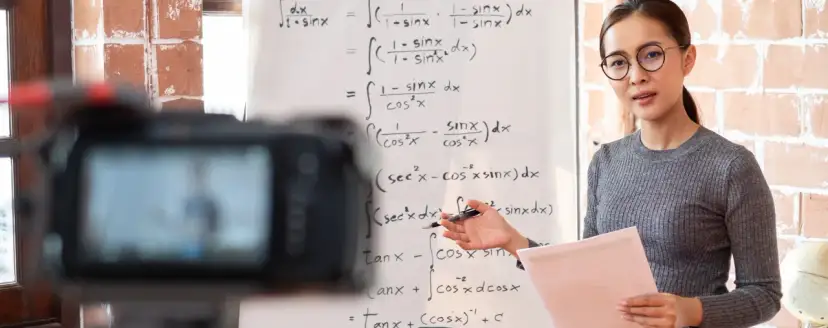 ∫ dx/1+sinx = ∫(1/1+sinx · 1-sinx/1-sinx)dx
= ∫(1-sinx/1-sin²x dx)
= ∫ 1-sinx/cos²x dx
∫(1/cos²x - sinx/cos²x)dx
∫(sec²x - cos⁻²x sinx)dx
∫(sec²x dx sinxdx)
Tanx - ∫cos x sin
Tanx + ∫cos⁻²x dcosx
= Tanx + (cosx)⁻¹ + c